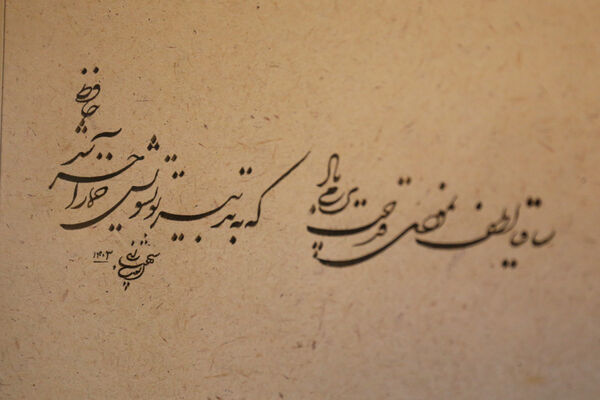 ساقیا لطف نمودی قدحت پر می باد
که به تدبیر تو تشویش خمار آخر شد
حافظ
۱۴۰۲